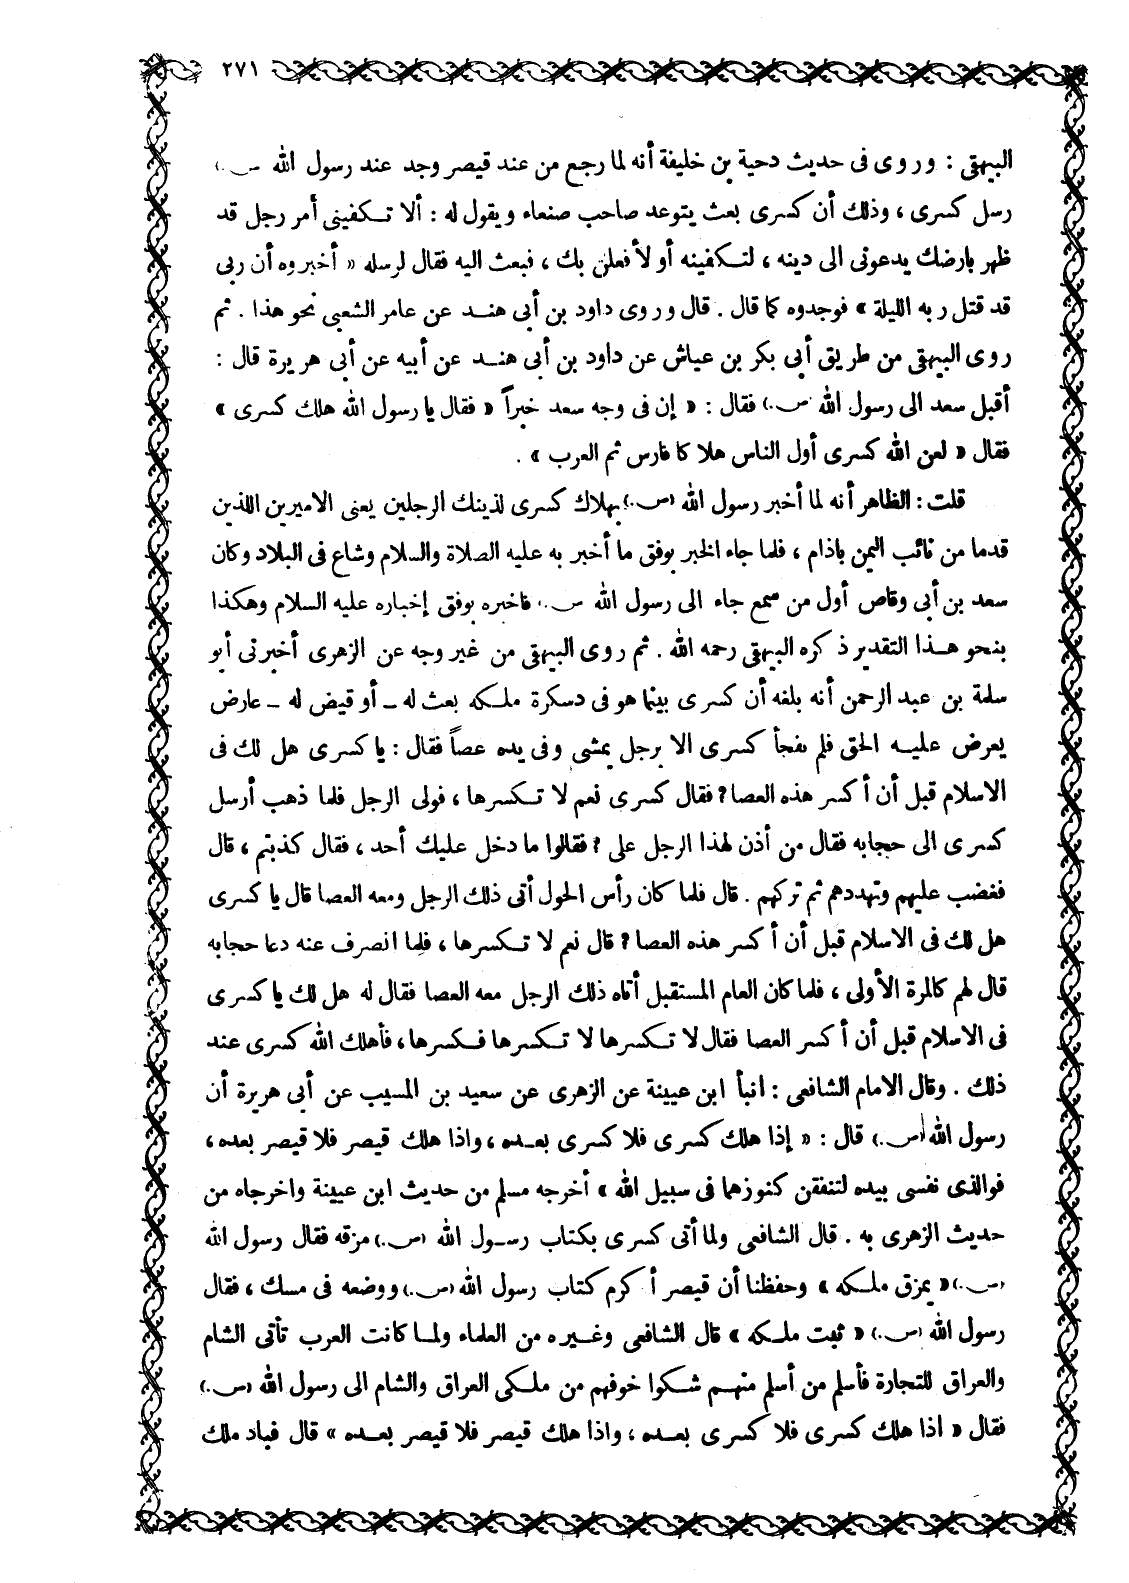 ٢٧١
البيهقى : وروى فى حديث دحية بن خليفة أنه لما رجع من عند قيصر وجد عند رسول الله (ص.)
رسل كسرى ، وذلك أن كسرى بعث يتوعد صاحب صنعاء ويقول له : ألا تكفينى أمر رجل قد
ظهر بارضك يدعونى الى دينه ، لتكفينه أو لأفعلن بك ، فبعث اليه فقال لرسله « أخبروه أن ربى
قد قتل ربه الليلة » فوجدوه كما قال . قال وروى داود بن أبى هند عن عامر الشعبى نحو هذا . ثم
روى البيهقى من طريق أبى بكر بن عياش عن داود بن أبى هند عن أبيه عن أبى هريرة قال :
أقبل سعد الى رسول الله (ص.) فقال : « إن فى وجه سعد خبراً « فقال يا رسول الله هلك كسرى »
فقال « لعن الله كسرى أول الناس هلا كا فارس ثم العرب » .
قلت : الظاهر أنه لما أخبر رسول الله (ص.) بهلاك كسرى لذينك الرجلين يعنى الاميرين اللذين
قدما من نائب اليمن باذام ، فلما جاء الخبر بوفق ما أخبر به عليه الصلاة والسلام وشاع فى البلاد وكان
سعد بن أبى وقاص أول من سمع جاء الى رسول الله (ص.) فاخبره بوفق إخباره عليه السلام وهكذا
بنحو هذا التقدير ذكره البيهقى رحمه الله . ثم روى البيهقى من غير وجه عن الزهرى أخبرنى أبو
سلمة بن عبد الرحمن أنه بلغه أن كسرى بينما هو فى دسكرة ملكه بعث له - أو قيض له - عارض
يعرض عليه الحق فلم يفجأ كسرى الا برجل يمشى وفى يده عصاً فقال : يا كسرى هل لك فى
الاسلام قبل أن أكسر هذه العصا ؟ فقال كسرى نعم لا تكسرها ، فولى الرجل فلما ذهب أرسل
كسرى الى حجابه فقال من أذن لهذا الرجل على ؟ فقالوا ما دخل عليك أحد ، فقال كذبتم ، قال
فغضب عليهم وتهددهم ثم تركهم . قال فلما كان رأس الحول أتى ذلك الرجل ومعه العصا قال يا كسرى
هل لك فى الاسلام قبل أن أكسر هذه العصا ؟ قال نعم لا تكسرها ، فلما انصرف عنه دعا حجابه
قال لهم كالمرة الأولى ، فلما كان العام المستقبل أتاه ذلك الرجل معه العصا فقال له هل لك يا كسرى
فى الاسلام قبل أن أكسر العصا فقال لا تكسرها لا تكسرها فكسرها ، فأهلك الله كسرى عند
ذلك . وقال الامام الشافعى : انبأ ابن عيينة عن الزهرى عن سعيد بن المسيب عن أبى هريرة أن
رسول الله (ص.) قال : « إذا هلك كسرى فلا كسرى بعده ، واذا هلك قيصر فلا قيصر بعده ،
فوالذى نفسى بيده لتنفقن كنوزهما فى سبيل الله » أخرجه مسلم من حديث ابن عيينة واخرجاه من
حديث الزهرى به . قال الشافعى ولما أتى كسرى بكتاب رسول الله (ص.) مزقه فقال رسول الله
(ص.) « يمزق ملكه » وحفظنا أن قيصر أكرم كتاب رسول الله (ص.) ووضعه فى مسك ، فقال
رسول الله (ص.) « ثبت ملكه » قال الشافعى وغيره من العلماء ولما كانت العرب تأتى الشام
والعراق للتجارة فأسلم من أسلم منهم شكوا خوفهم من ملكى العراق والشام الى رسول الله (ص.)
فقال « اذا هلك كسرى فلا كسرى بعده ، واذا هلك قيصر فلا قيصر بعده » قال فباد ملك